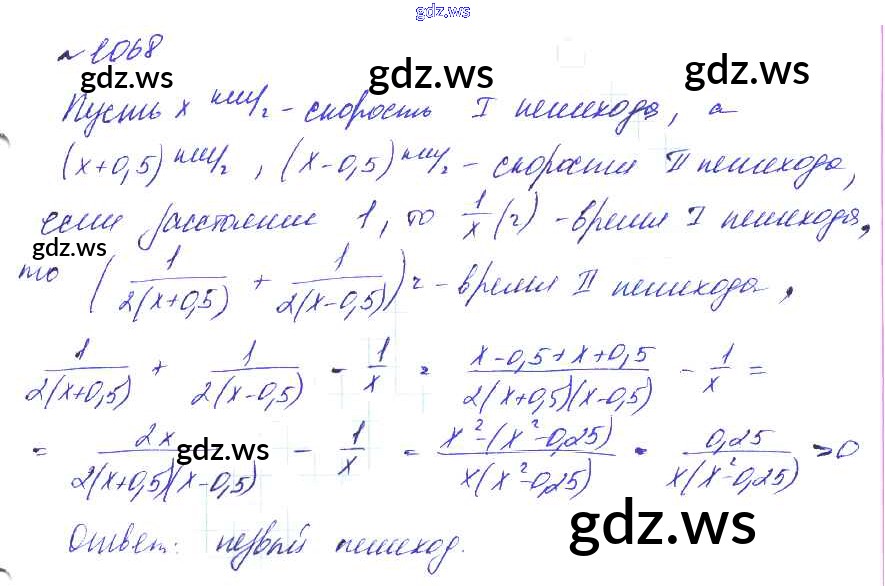 gdz.ws
№ 1068
gdz.ws gdz.ws gdz.ws
Пусть x км/г - скорость I пешехода, а
(x+0,5) км/г, (x-0,5) км/г - скорости II пешехода,
если расстояние 1, то 1/x (г) - время I пешехода,
gdz.ws
то (1/(2(x+0,5)) + 1/(2(x-0,5))) г - время II пешехода,
1/(2(x+0,5)) + 1/(2(x-0,5)) - 1/x = (x-0,5+x+0,5)/(2(x+0,5)(x-0,5)) - 1/x =
= 2x/(2(x+0,5)(x-0,5)) - 1/x = (x²-(x²-0,25))/(x(x²-0,25)) = 0,25/(x(x²-0,25)) > 0
gdz.ws
Ответ: первый пешеход.
gdz.ws